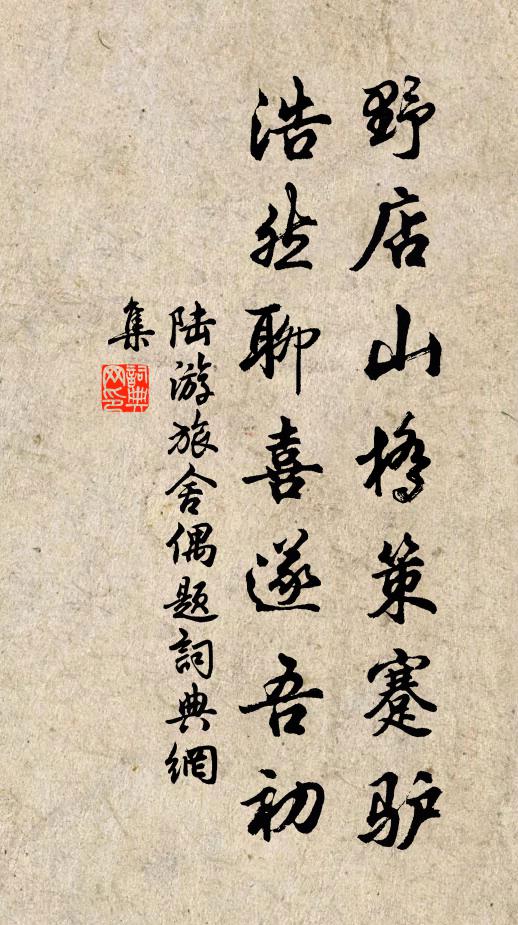 野店山橋策蹇驴
浩然聊喜遂吾初
陆游旅舍偶题詞典網
集
詞典
网印